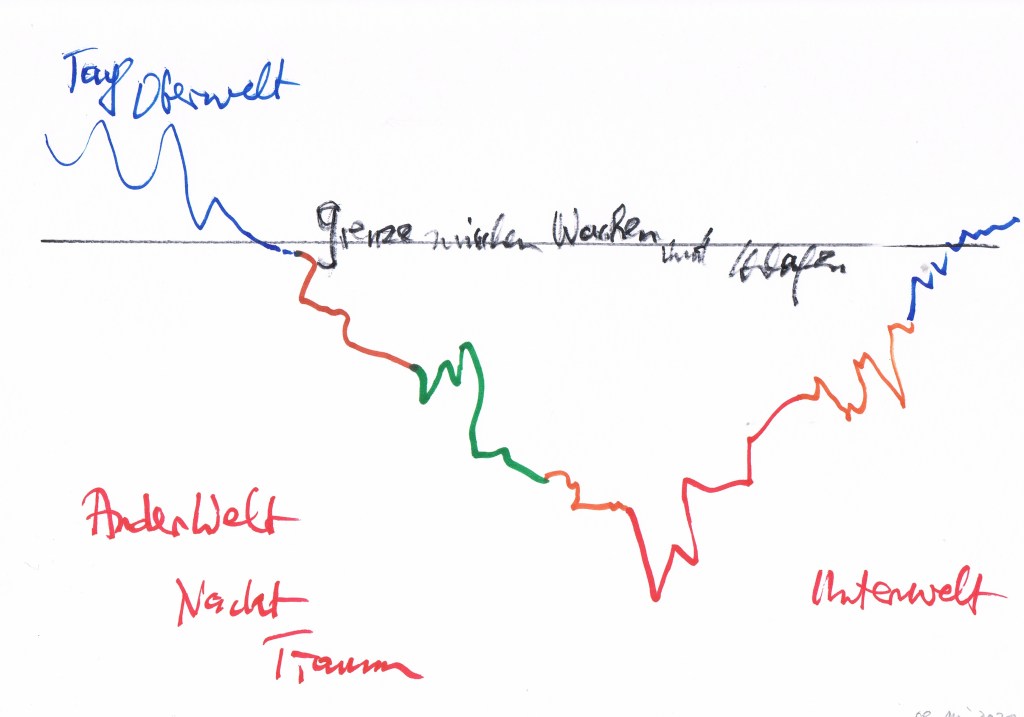 Tag Oberwelt
Grenze zwischen Wachen und Schlafen
AnderWelt
Nacht
Traum
Unterwelt